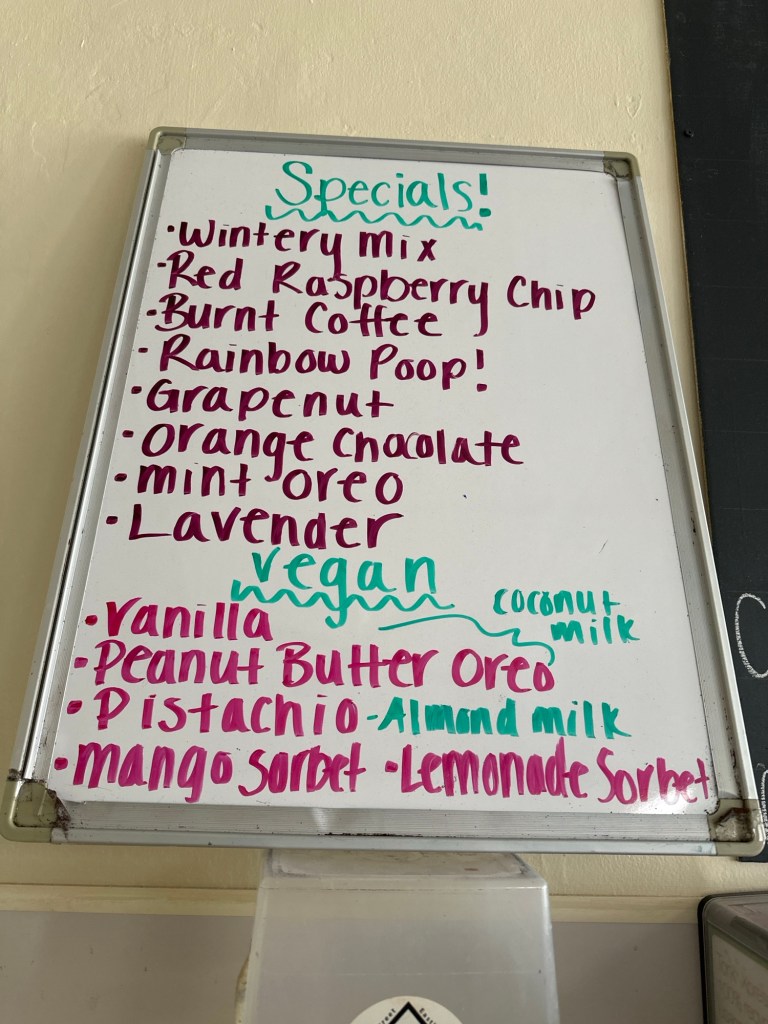 Specials!
•Wintery mix
•Red Raspberry Chip
•Burnt Coffee
•Rainbow Poop!
•Grapenut
•Orange Chacolate
•mint oreo
•Lavender
vegan
coconut
milk
•Vanilla
•Peanut Butter Oreo
•Pistachio -Almond milk
•mango sorbet •Lemonade Sorbet